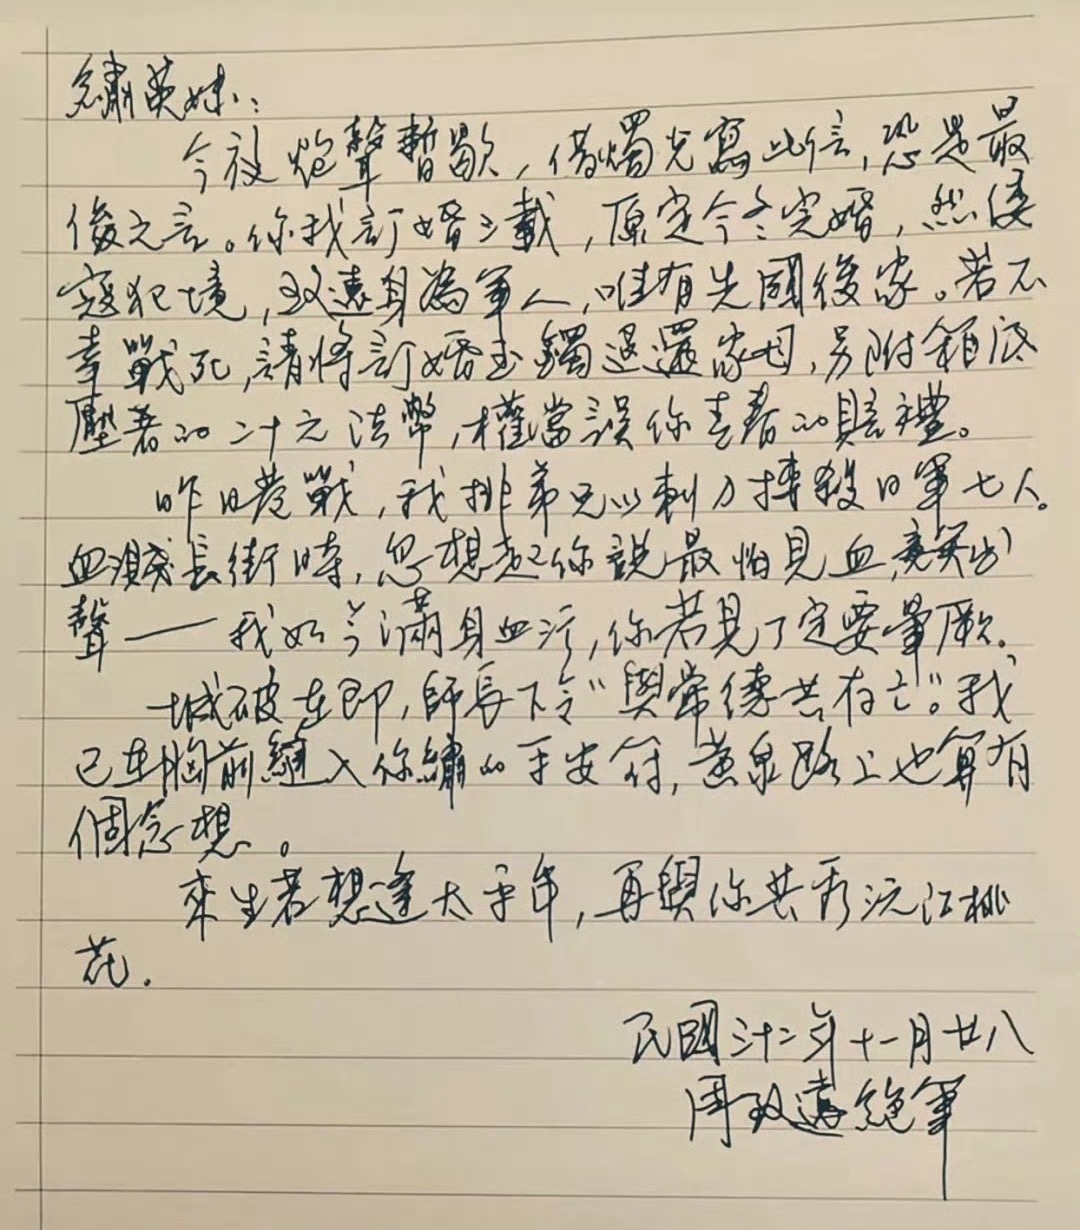 繡英妹：
今夜炮聲暫歇，借燭光寫此信，恐是最
後之言。你我訂婚三載，原定今冬完婚，然倭
寇犯境，致遠身為軍人，唯有先國後家。若不
幸戰死，請將訂婚玉鐲退還家母，另附箱底
壓著的二十元法幣，權當誤你青春的賠禮。
昨日巷戰，我排弟兄以刺刀搏殺日軍七人。
血濺長街時，忽想起你說最怕見血，竟笑出
聲——我如今滿身血污，你若見了定要暈厥。
城破在即，師長下令“與常德共存亡”。我
已在胸前縫入你繡的平安符，黃泉路上也算有
個念想。
來生若想逢太平年，再與你共看沅江桃
花.
民國三十二年十一月廿八
周致遠絕筆